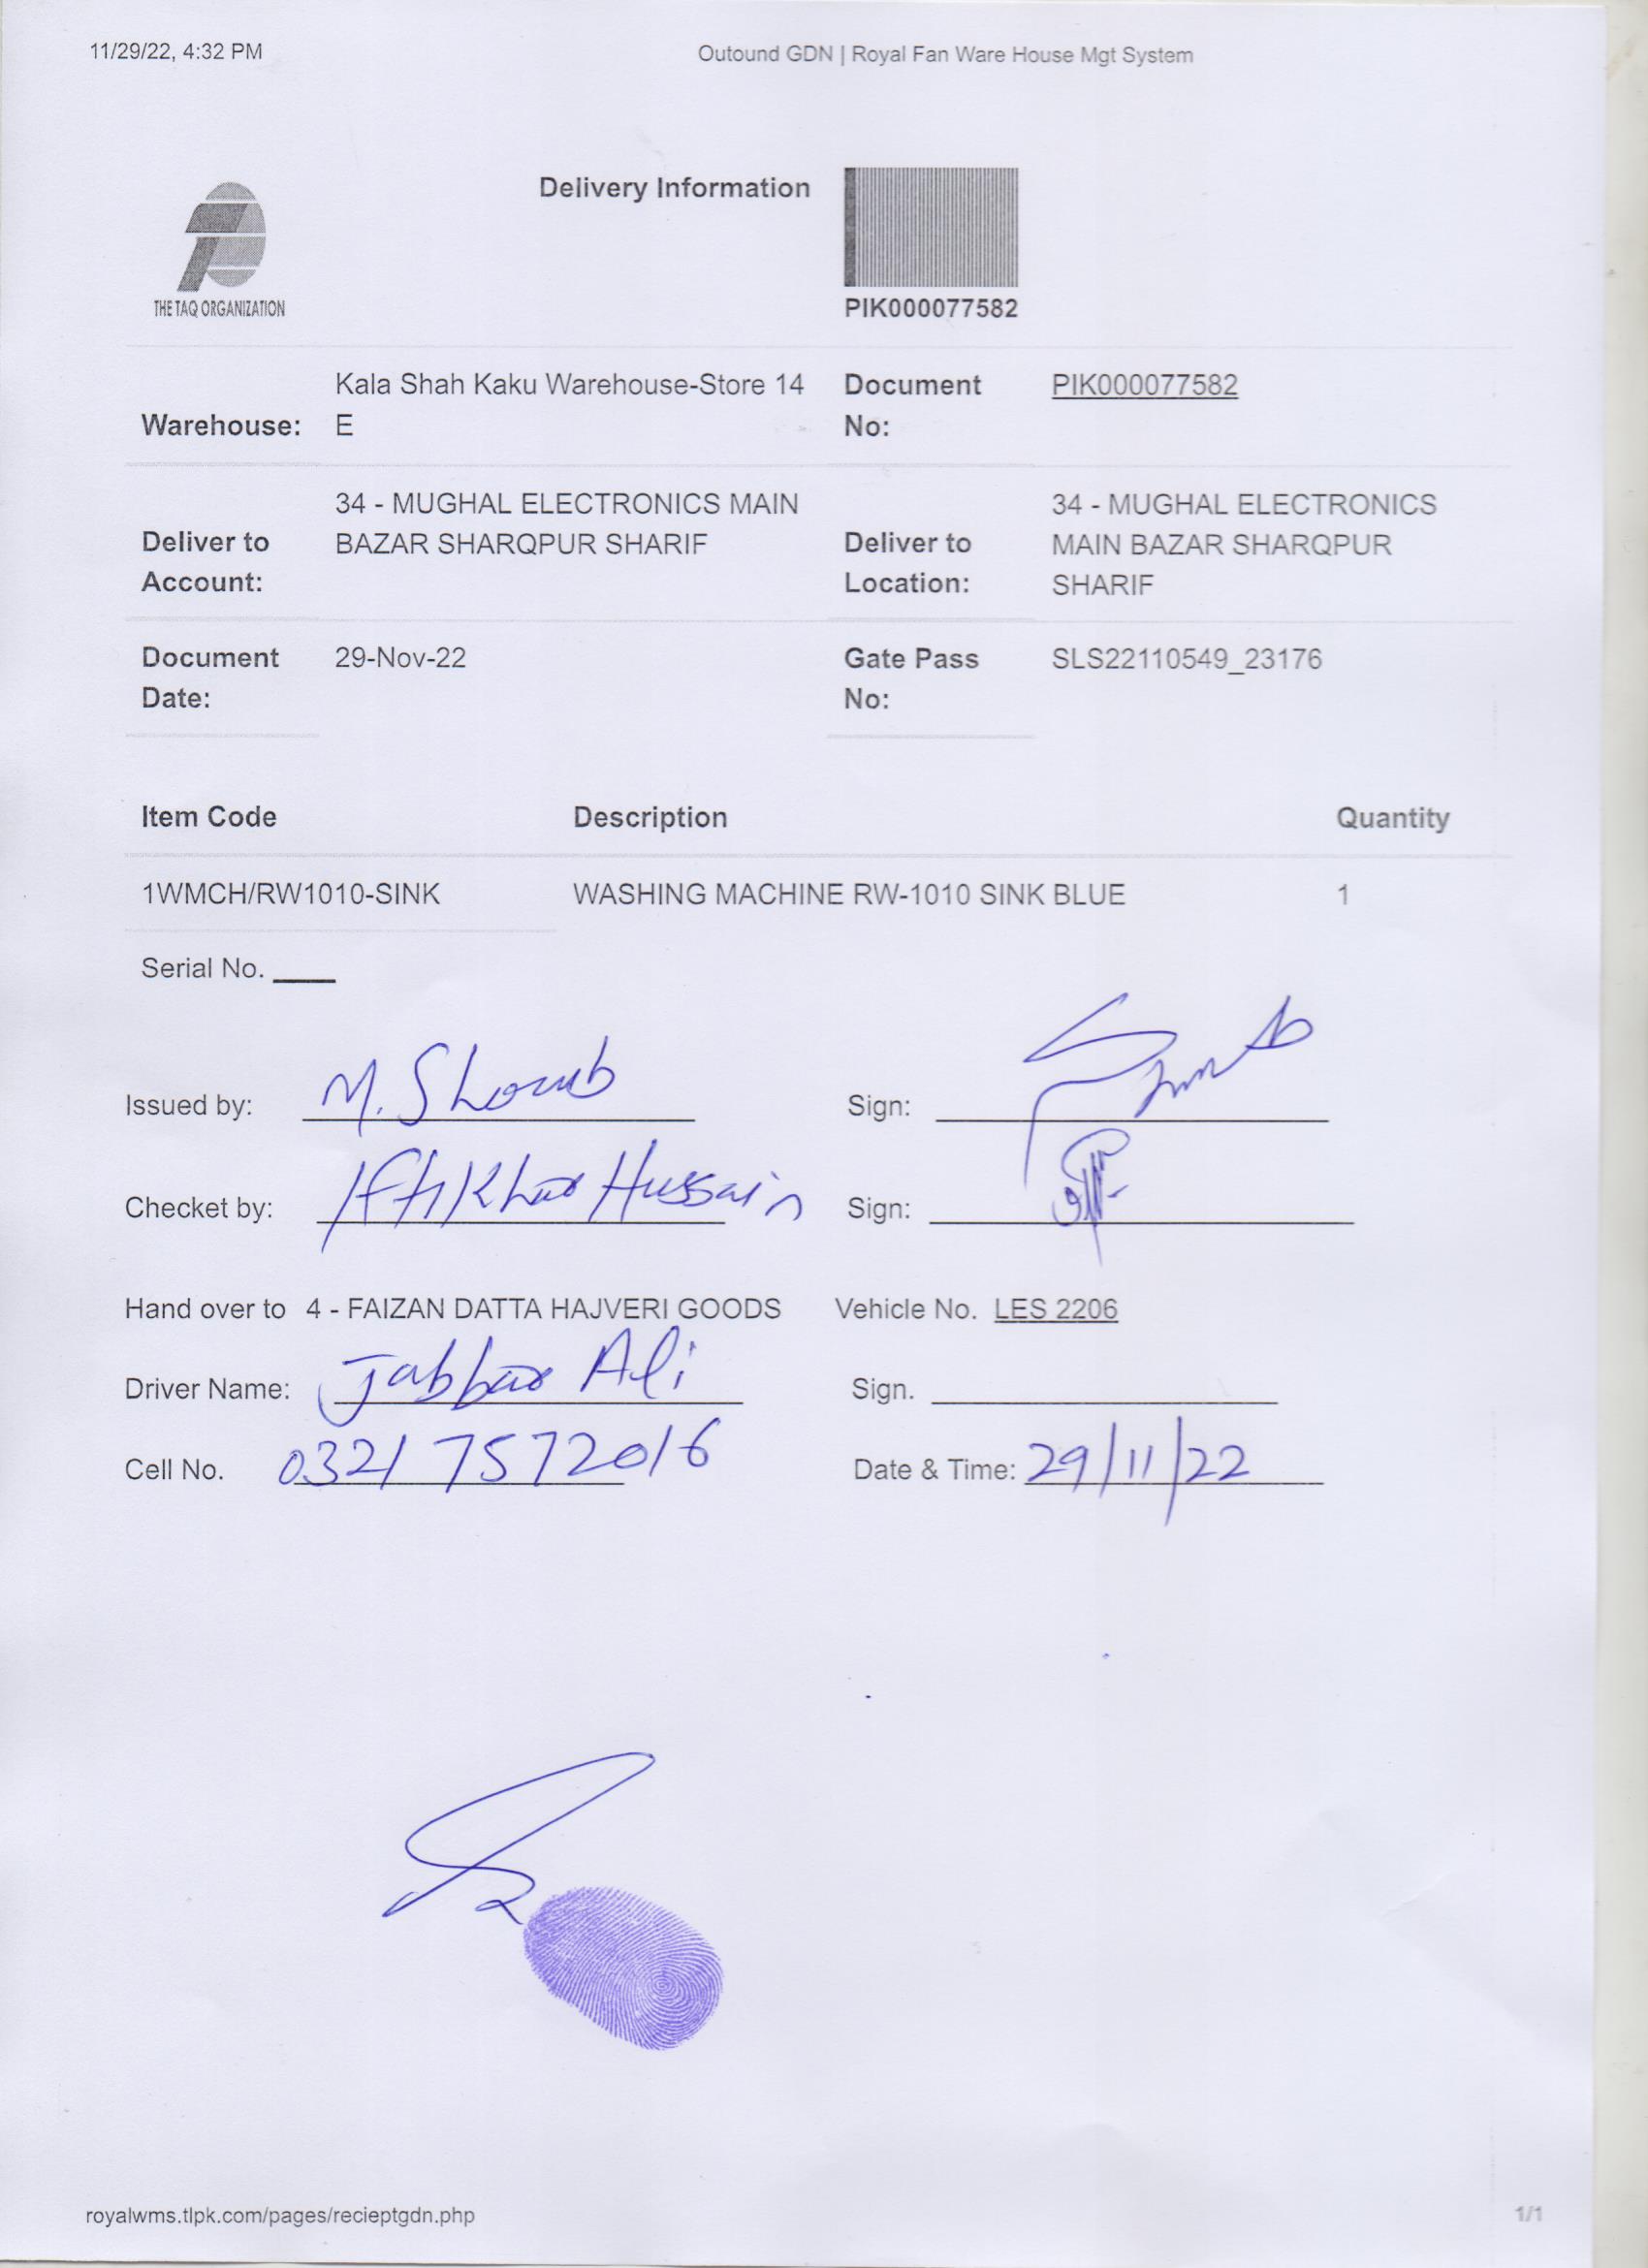 11/29/22, 4:32 PM Outound GDN | Royal Fan Ware House Mgt System
Delivery Information
THE TAQ ORGANIZATION
PIK000077582
Warehouse: Kala Shah Kaku Warehouse-Store 14 E
Document No: PIK000077582
Deliver to Account: 34 - MUGHAL ELECTRONICS MAIN BAZAR SHARQPUR SHARIF
Deliver to Location: 34 - MUGHAL ELECTRONICS MAIN BAZAR SHARQPUR SHARIF
Document Date: 29-Nov-22
Gate Pass No: SLS22110549_23176
Item Code Description Quantity
1WMCH/RW1010-SINK WASHING MACHINE RW-1010 SINK BLUE 1
Serial No.
Issued by: M. Sign:
Checket by: Iftikhar Hussain Sign:
Hand over to 4 - FAIZAN DATTA HAJVERI GOODS Vehicle No. LES 2206
Driver Name: Jabbar Ali Sign.
Cell No. 0321 7572016 Date & Time: 29/11/22
royalwms.tlpk.com/pages/recieptgdn.php 1/1